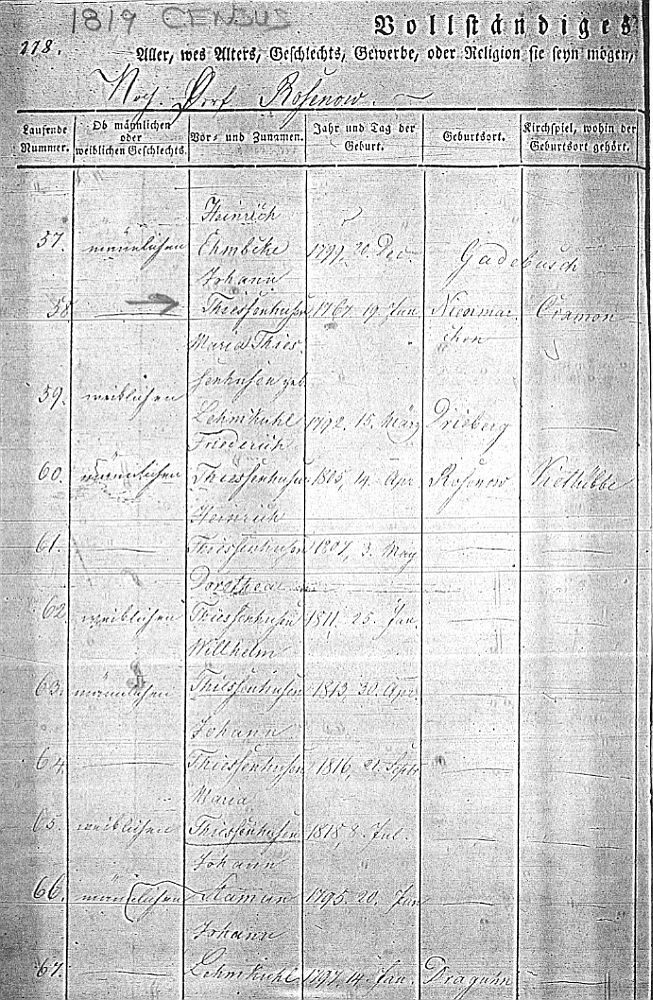 1819 CENSUS
Vollständiges
218.
Aller, wes Alters, Geschlechts, Gewerbe, oder Religion sie seyn mögen,
Dorf Rosenow
Laufende Nummer.
Ob männlichen oder weiblichen Geschlechts.
Vor- und Zunamen.
Jahr und Tag der Geburt.
Geburtsort.
Kirchspiel, wohin der Geburtsort gehört.
Heinrich
57. männlichen Ehmbcke 1797, 20. Dec. Gadebusch
Johann
58 Thiessenhusen 1767. 19 Jan Cramon
Maria Thies-
senhusen geb.
59. weiblichen
Lehmkuhl 1792. 15. März Drieberg
Friederich
60. männlichen Thiessenhusen 1805, 14. Apr Rosenow Viethübbe
Heinrich
61. Thiessenhusen 1807, 3. May
Dorothea
62 weiblichen Thiessenhusen 1811. 25. Jan.
Willhelm
63. männlichen Thiessenhusen 1813. 30. Apr.
Johann
64 Thiessenhusen 1816, 21. Septr
Maria
65. weiblichen Thiessenhusen 1818, 8. Jul.
Johann
66. männlichen 1795. 20. Jan
Johann
67. Lehmkuhl 1797, 14. Jan. Draguhn